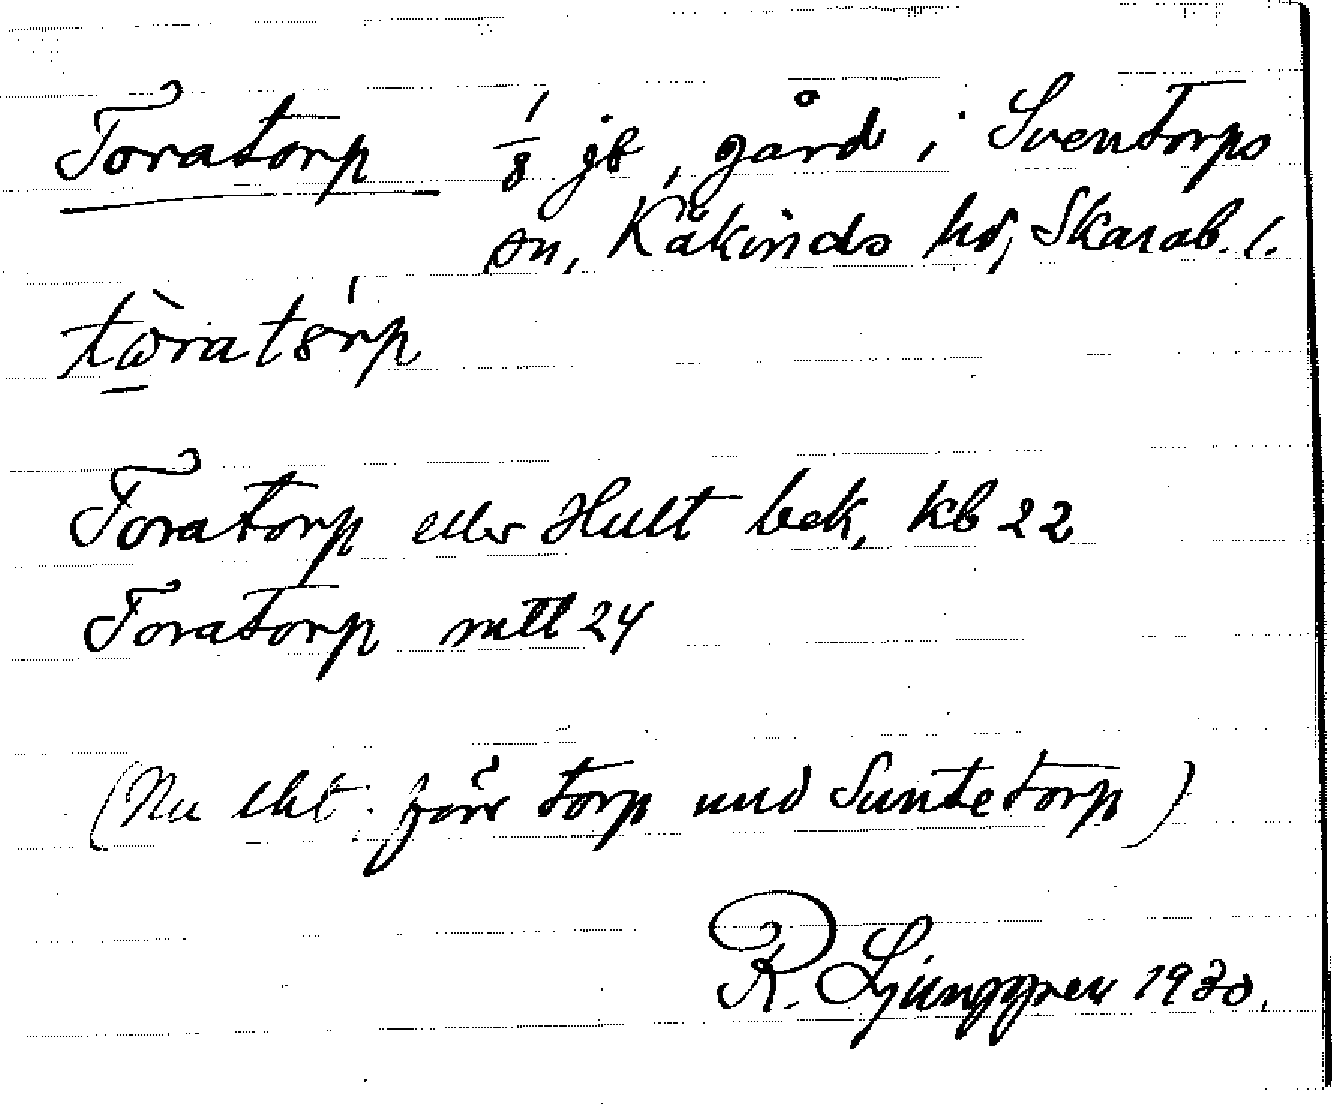 Toratorp 1/8 jb, gård i Sventorps
sn, Kåkinds hd, Skarab. l.
tòratórp
Toratorp eller Hult bek, kb 22
Toratorp mtl 24
(Nu torp und Suntetorp)
R. Ljunggren 1930.